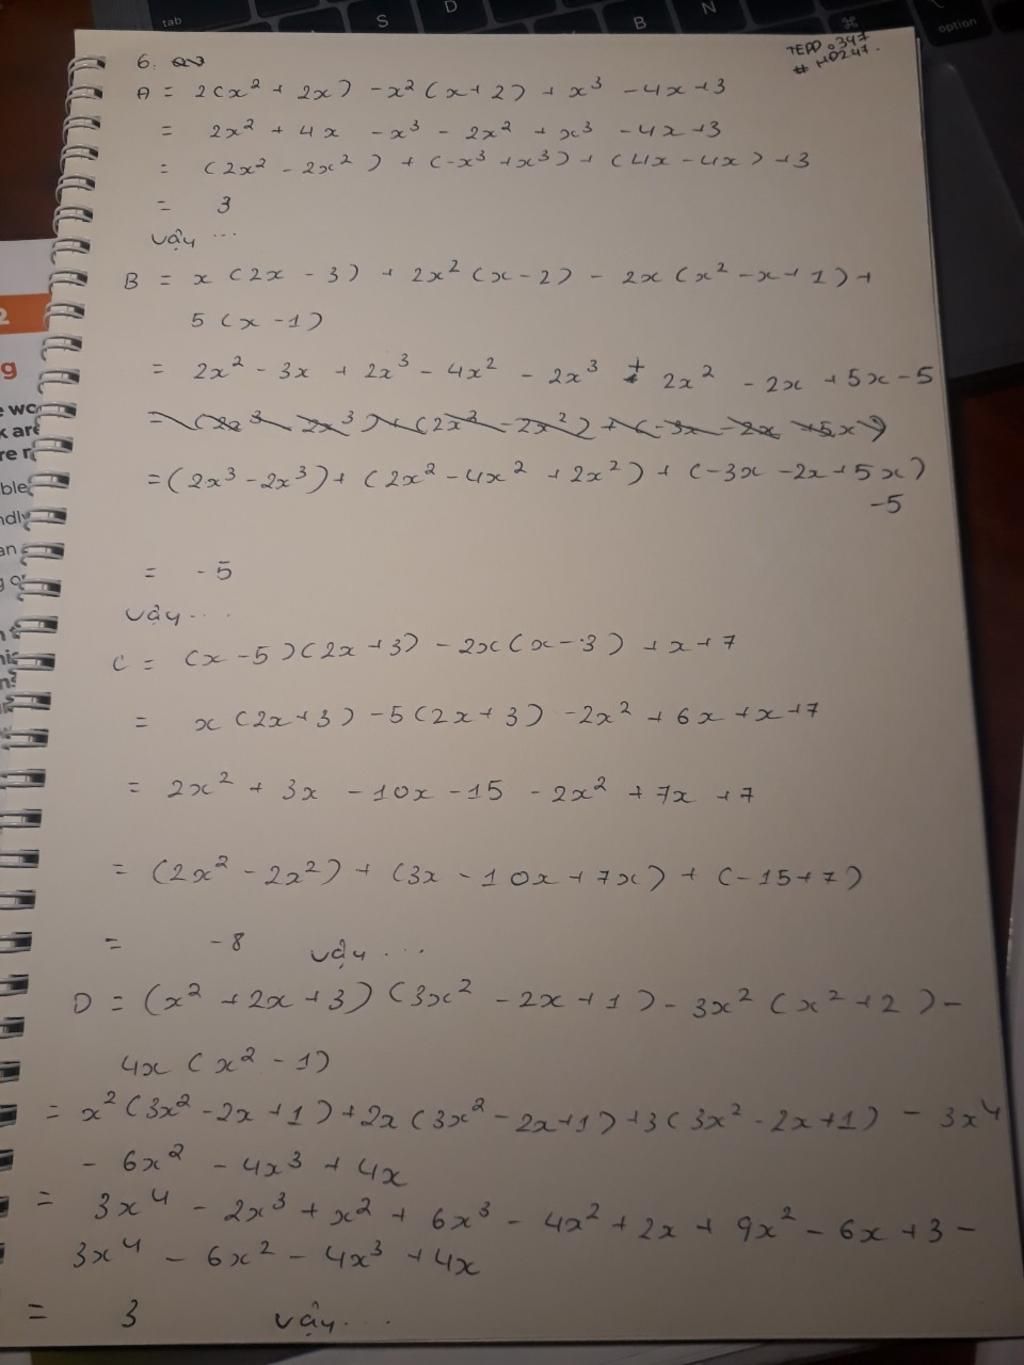 tab
S
D
B
N
⌘
option
TEPD.347
# HD247.
6.
A = 2(x² + 2x) - x²(x+2) + x³ - 4x + 3
= 2x² + 4x - x³ - 2x² + x³ - 4x + 3
= (2x² - 2x²) + (-x³ + x³) + (4x - 4x) + 3
= 3
Vậy ...
B = x(2x - 3) + 2x²(x - 2) - 2x(x² - x + 1) +
5(x - 1)
= 2x² - 3x + 2x³ - 4x² - 2x³ + 2x² - 2x + 5x - 5
= (2x³ - 2x³) + (2x² - 2x²) + (-3x - 2x + 5x)
= (2x³ - 2x³) + (2x² - 4x² + 2x²) + (-3x - 2x + 5x)
-5
= -5
Vậy ...
C = (x - 5)(2x + 3) - 2x(x - 3) + x + 7
= x(2x + 3) - 5(2x + 3) - 2x² + 6x + x + 7
= 2x² + 3x - 10x - 15 - 2x² + 7x + 7
= (2x² - 2x²) + (3x - 10x + 7x) + (-15 + 7)
= -8 Vậy ...
D = (x² + 2x + 3)(3x² - 2x + 1) - 3x²(x² + 2) -
4x(x² - 1)
= x²(3x² - 2x + 1) + 2x(3x² - 2x + 1) + 3(3x² - 2x + 1) - 3x⁴
- 6x² - 4x³ + 4x
= 3x⁴ - 2x³ + x² + 6x³ - 4x² + 2x + 9x² - 6x + 3 -
3x⁴ - 6x² - 4x³ + 4x
= 3 Vậy ...
2
g